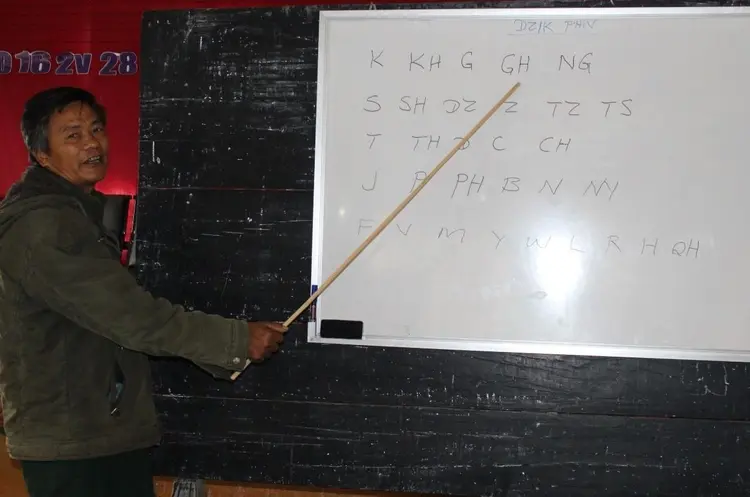 16 2V 28
DZIK PHIV
K KH G GH NG
S SH DZ Z TZ TS
T TH D C CH
J P PH B N NY
F V M Y W L R H QH